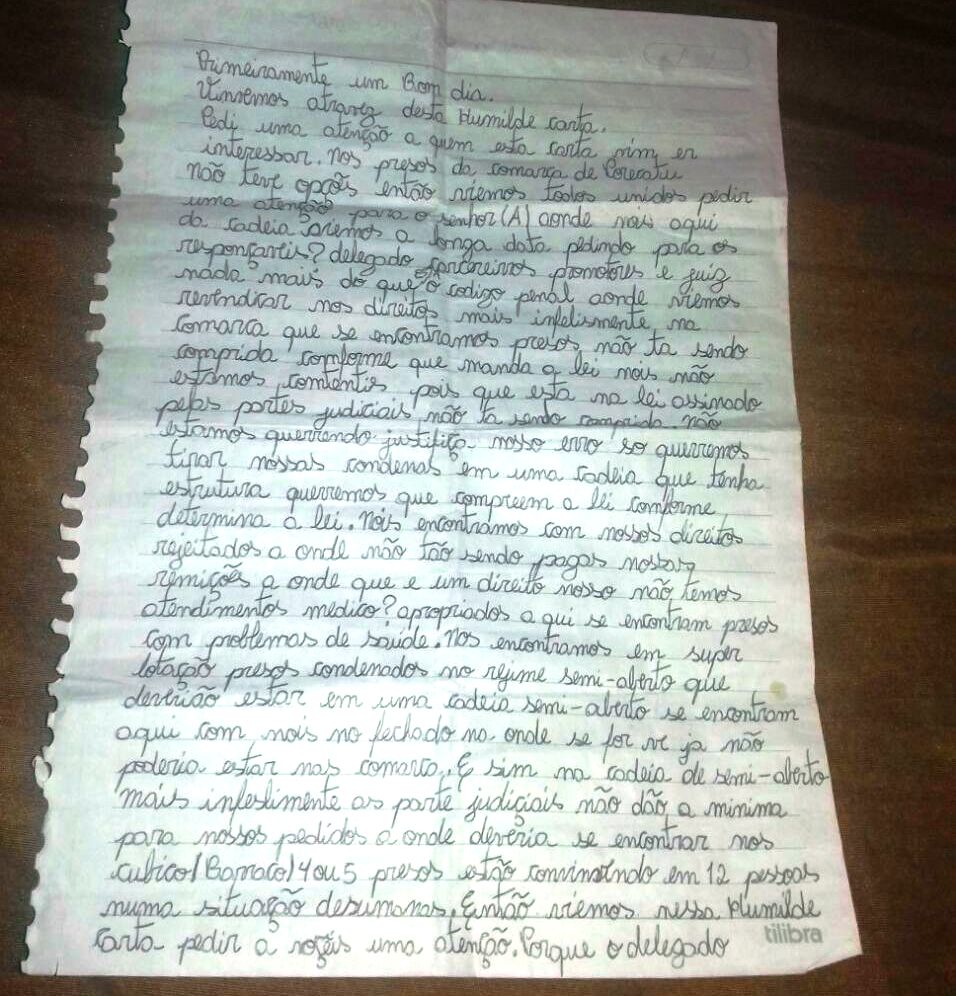 Primeiramente um Bom dia.
Vinremos atravez desta Humilde carta.
Pedi uma atenção a quem esta carta vim er
interessar. Nos presos da comarca de Porecatu
não teve opções então viemos todos unidos pedir
uma atenção para o senhor(A) aonde nois aqui
da cadeia viemos a longa data pedindo para os
responçaveis? delegado carcereiros promotores e juiz
nada mais do que o codigo penal aonde viemos
revendicar nos direitos mais infelismente na
comarca que se encontramos presos não ta sendo
comprida comforme que manda a lei nois não
estamos comtentis pois que esta na lei assinado
pelas partes judiciais não ta sendo comprida. não
estamos querrendo justifiça nosso erro so querremos
tirar nossas condenas em uma cadeia que tenha
estrutura querremos que compreem a lei comforme
determina a lei. Nois encontramos com nossos direitos
rejeitados a onde não tão sendo pagas nossas
remições a onde que e um direito nosso não temos
atendimentos medico? apropriados a qui se encontram presos
com problemas de saúde. Nos encontramos em super
lotação presos condenados no regime semi-aberto que
deverião estar em uma cadeia semi-aberto se encontram
aqui com nois no fechado na onde se for ve ja não
poderia estar nas comarca. E sim na cadeia de semi-aberto
mais infeslimente as parte judiciais não dão a minima
para nossos pedidos a onde deveria se encontrar nos
cubico/Barraco/4 ou 5 presos estão convinvendo em 12 pessoas
numa situação desumanas. Então viemos nessa Humilde
carta pedir a voçeis uma atenção. Porque o delegado
tilibra